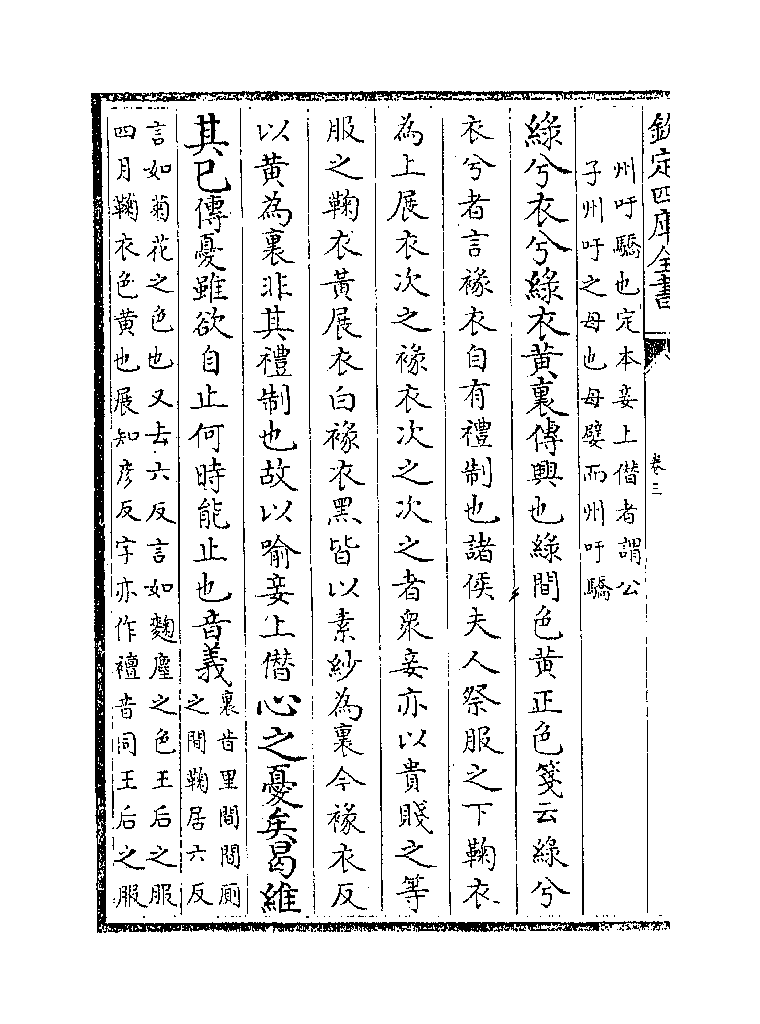 欽定四庫全書
卷三
州吁驕也定本妾上僣者謂公
子州吁之母也母嬖而州吁驕
綠兮衣兮綠衣黄裏傳興也綠間色黄正色箋云綠兮
衣兮者言褖衣自有禮制也諸侯夫人祭服之下鞠衣
為上展衣次之褖衣次之次之者衆妾亦以貴賤之等
服之鞠衣黄展衣白褖衣黑皆以素紗為裏今褖衣反
以黄為裏非其禮制也故以喻妾上僣心之憂矣曷維
其已傳憂雖欲自止何時能止也音義
裏音里間間厠
之間鞠居六反
言如菊花之色也又去六反言如麴塵之色王后之服
四月鞠衣色黄也展知彦反字亦作襢音同王后之服